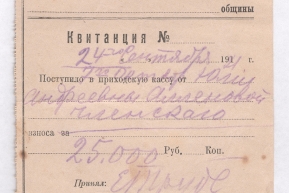 общины
Квитанция №
24 Сентября 191 г.
Поступило в приходскую кассу от
Андреевны
членскаго
взноса за
25.000 Руб. Коп.
Принял: